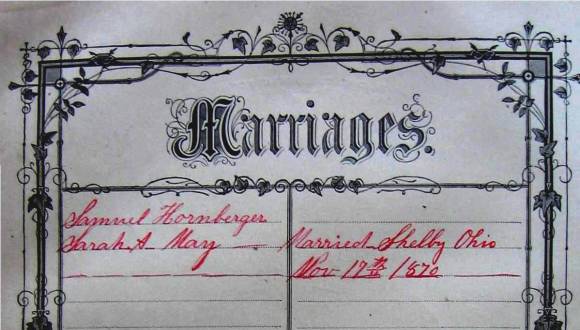 Marriages.
Samuel Hornberger
Sarah A May — Married Shelby Ohio
Nov 17th 1870